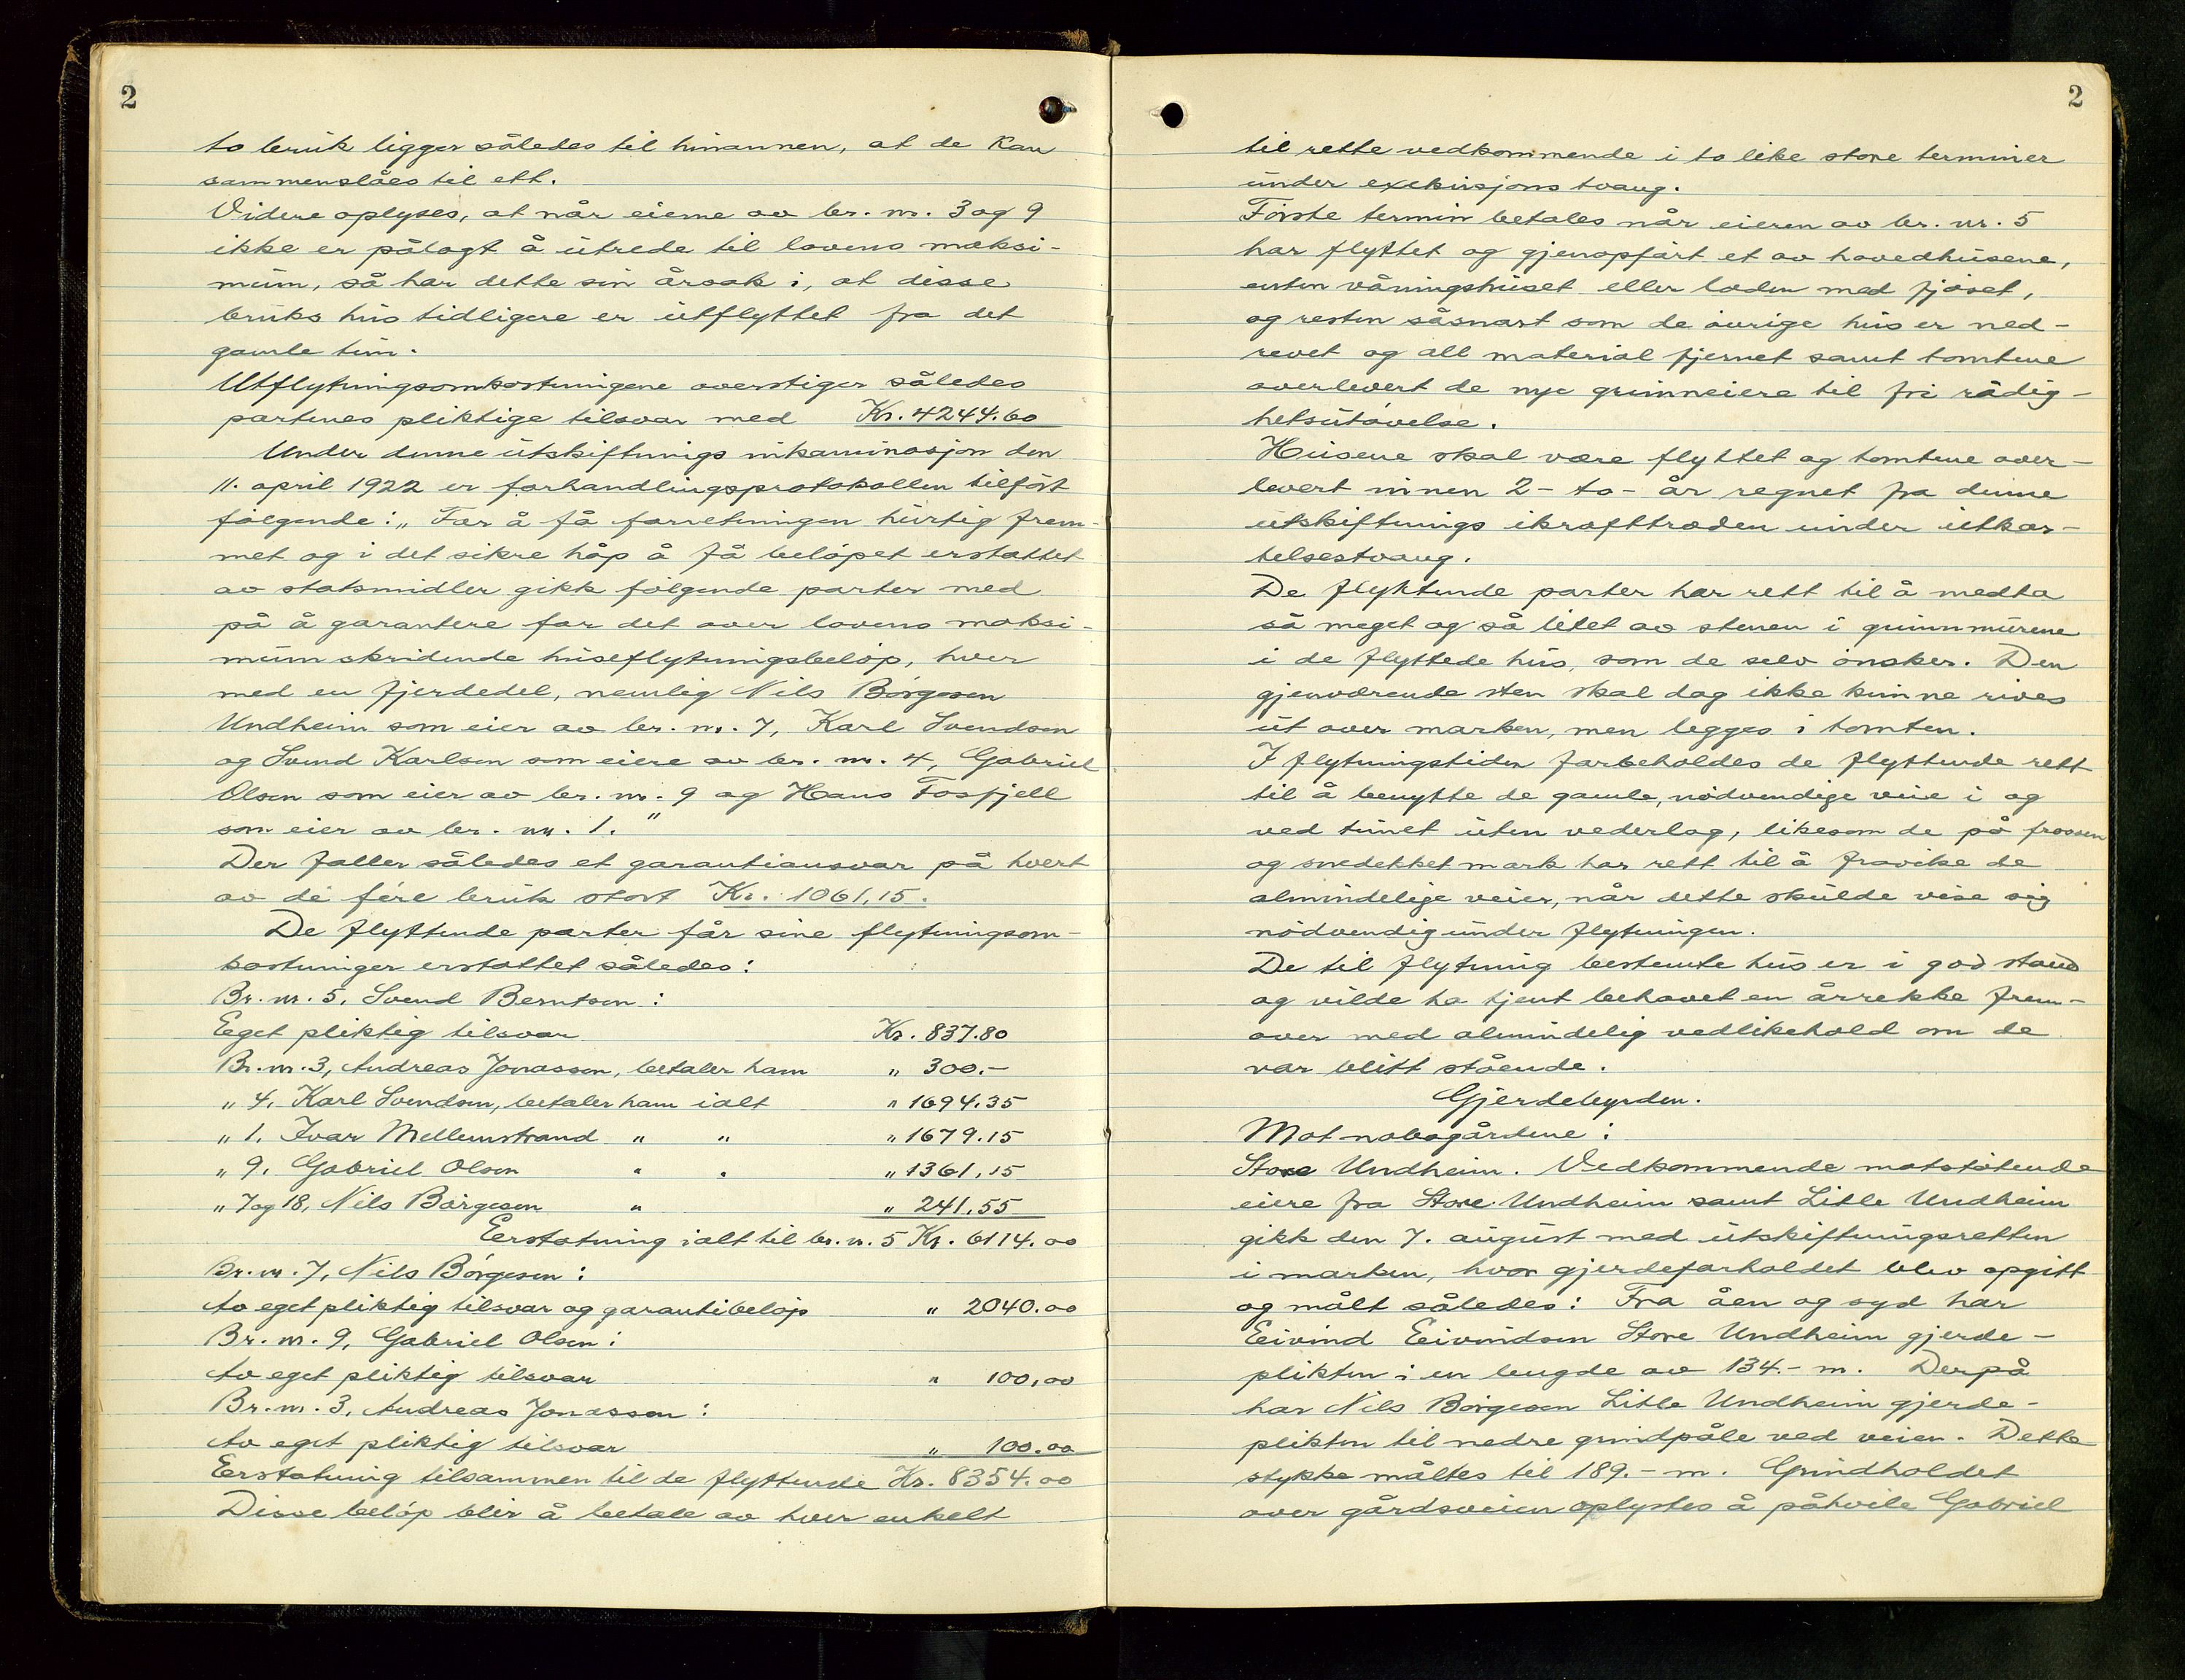 2
to bruk ligger således til hinannen, at de kan
sammenslåes til ett.
Videre oplyses, at når eierne av br. nr. 3 og 9
ikke er pålagt å utrede til lovens maksi-
mum, så har dette sin årsak i, at disse
bruks hus tidligere er utflyttet fra det
gamle tun.
Utflytningsomkostningene overstiger således
partenes pliktige tilsvar med Kr. 4244.60
Under denne utskiftnings inkaminasjon den
11. april 1922 er forhandlingsprotokollen tilført
følgende: „For å få forretningen hurtig frem-
met og i det sikre håp å få beløpet erstattet
av statsmidler gikk følgende parter med
på å garantere for det over lovens maksi-
mum skridende huseflytningsbeløp, hver
med en fjerdedel, nemlig Nils Børgesen
Undheim som eier av br. nr. 7, Karl Svendsen
og Svend Karlsen som eiere av br. nr. 4, Gabriel
Olsen som eier av br. nr. 9 og Hans Fosfjell
som eier av br. nr. 1."
Der faller således et garantiansvar på hvert
av de fire bruk stort Kr. 1061,15.
De flyttende parter får sine flytningsom-
kostninger erstattet således:
Br. nr. 5. Svend Berntsen:
Eget pliktig tilsvar Kr. 837.80
Br. nr. 3, Andreas Jonassen, betaler ham " 300.-
" 4. Karl Svendsen, betaler ham ialt " 1694.35
" 1. Ivar Mellemstrand " " " 1679.15
" 9. Gabriel Olsen " " " 1361,15
" 7 og 18, Nils Børgesen " " 241.55
Erstatning ialt til br. nr. 5 Kr. 6114.00
Br. nr. 7, Nils Børgesen:
Av eget pliktig tilsvar og garantibeløp " 2040.00
Br. nr. 9, Gabriel Olsen:
Av eget pliktig tilsvar " 100,00
Br. nr. 3, Andreas Jonassen:
Av eget pliktig tilsvar " 100.00
Erstatning tilsammen til de flyttende Kr. 8354.00
Disse beløp blir å betale av hver enkelt
2
til rette vedkommende i to like store terminer
under exekusjons tvang.
Første termin betales når eieren av br. nr. 5
har flyttet og gjenopført et av hovedhusene,
enten våningshuset eller loden med fjøset,
og resten såsnart som de øvrige hus er ned-
revet og all material fjernet samt tomtene
overlevert de nye grunneiere til fri rådig-
hetsutøvelse.
Husene skal være flyttet og tomtene over-
levert innen 2- to- år regnet fra denne
utskiftnings ikrafttreden under utkas-
telsestvang.
De flyttende parter har rett til å medta
så meget og så litet av stenen i grunnmurene
i de flyttede hus, som de selv ønsker. Den
gjenværende sten skal dog ikke kunne rives
ut over marken, men legges i tomten.
I flytningstiden forbeholdes de flyttende rett
til å benytte de gamle, nødvendige veie i og
ved tunet uten vederlag, likesom de på frossen
og snedekket mark har rett til å fravike de
almindelige veier, når dette skulde vise sig
nødvendig under flytningen.
De til flytning bestemte hus er i god stand
og vilde ha tjent behovet en årrekke frem-
over med almindelig vedlikehold om de
var blitt stående.
Gjerdebyrden.
Mot nabogårdene:
Store Undheim. Vedkommende motstøtende
eiere fra Store Undheim samt Litle Undheim
gikk den 7. august med utskiftningsretten
i marken, hvor gjerdeforholdet blev opgitt
og målt således: Fra åen og syd har
Eivind Eivindsen Store Undheim gjerde-
plikten i en lengde av 134.- m. Derpå
har Nils Børgesen Litle Undheim gjerde-
plikten til nedre grindpåle ved veien. Dette
stykke måltes til 189.- m. Grindholdet
over gårdsveien oplystes å påhvile Gabriel